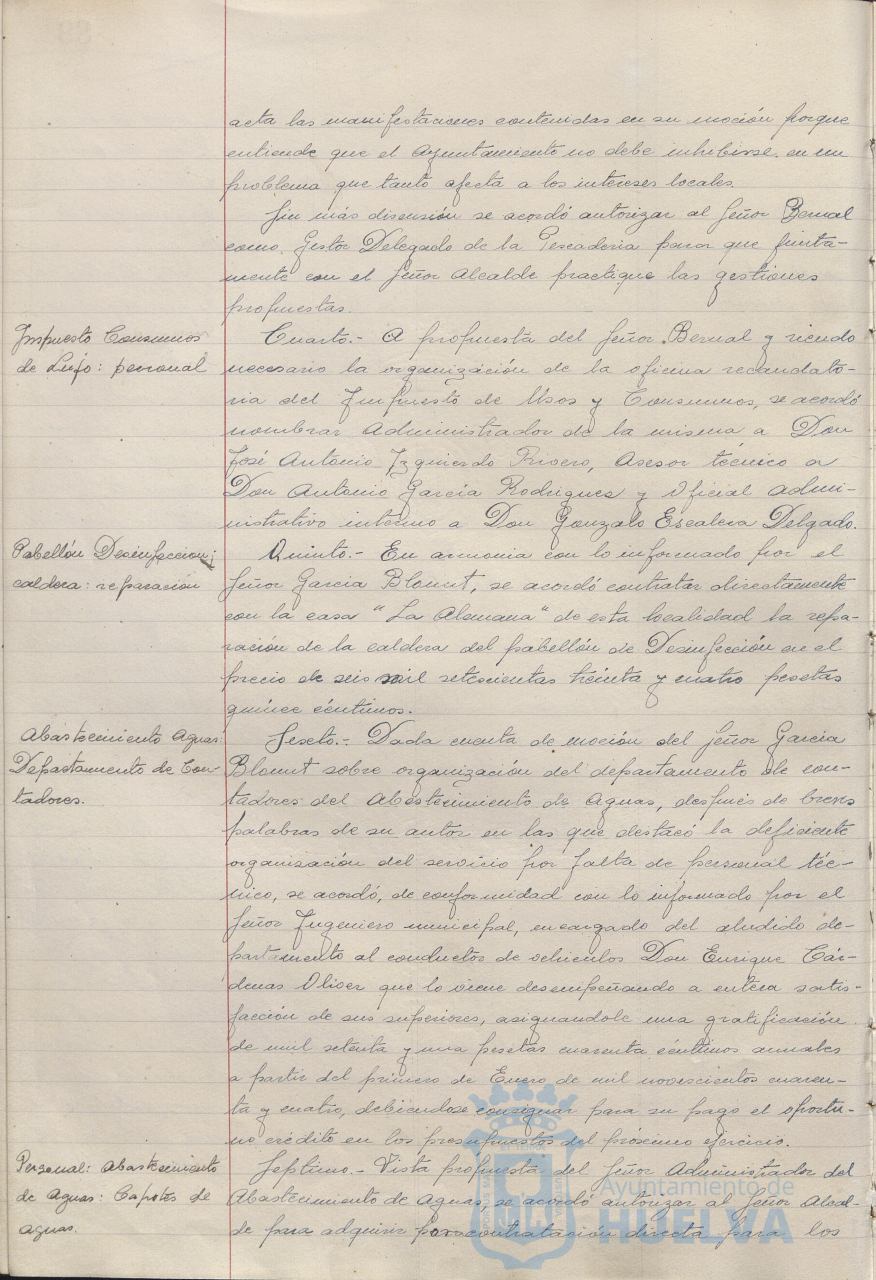 acta las manifestaciones contenidas en su moción porque
entiende que el Ayuntamiento no debe inhibirse en un
problema que tanto afecta a los intereses locales.
Sin más discusión se acordó autorizar al Señor Bernal
como Gestor Delegado de la Pescaderia para que junta-
mente con el Señor Alcalde practique las gestiones
propuestas.
Impuesto Consumos
de Lujo: personal
Cuarto.- A propuesta del Señor Bernal y siendo
necesario la organización de la oficina recaudato-
ria del Impuesto de Usos y Consumos, se acordó
nombrar Administrador de la misma a Don
José Antonio Izquierdo Rivero, Asesor técnico a
Don Antonio García Rodrigues y Oficial admi-
nistrativo interino a Don Gonzalo Escalera Delgado.
Pabellón Desinfeccion;
caldera: reparación
Quinto.- En armonia con lo informado por el
Señor Garcia Blount, se acordó contratar directamente
con la casa "La Alemana" de esta localidad la repa-
ración de la caldera del pabellón de Desinfección en el
precio de seis mil setecientas treinta y cuatro pesetas
quince céntimos.
Abastecimiento Aguas:
Departamento de Con-
tadores.
Sexto.- Dada cuenta de moción del Señor Garcia
Blount sobre organización del departamento de con-
tadores del Abastecimiento de Aguas, después de breves
palabras de su autor en las que destacó la deficiente
organización del servicio por falta de personal téc-
nico, se acordó, de conformidad con lo informado por el
Señor Ingeniero municipal, encargado del aludido de-
partamento al conductor de vehiculos Don Enrique Cár-
denas Oliver que lo viene desempeñando a entera satis-
facción de sus superiores, asignandole una gratificación
de mil setenta y una pesetas cuarenta céntimos anuales
a partir del primero de Enero de mil novescientos cuaren-
ta y cuatro, debiendose consignar para su pago el oportu-
no crédito en los presupuestos del próximo ejercicio.
Personal: Abastecimiento
de Aguas: Capotes de
aguas.
Septimo.- Vista propuesta del Señor Administrador del
Abastecimiento de Aguas, se acordó autorizar al Señor Alcal-
de para adquirir por contratación directa para los
Ayuntamiento de
HUELVA